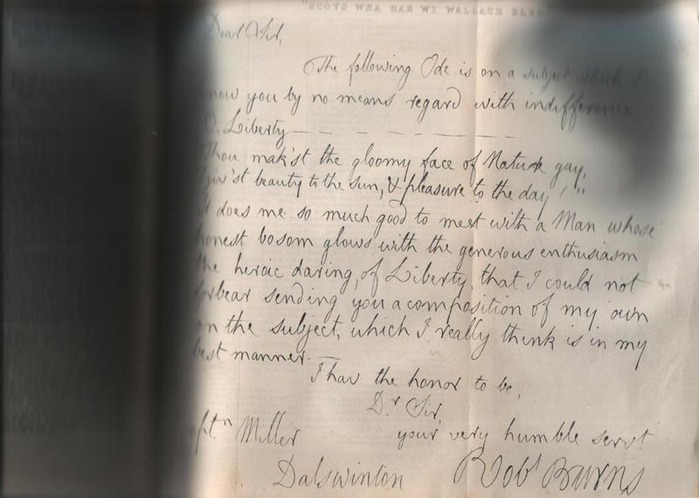 "SCOTS WHA HAE WI WALLACE BLED
Dear Sir,
The following Ode is on a subject which I
know you by no means regard with indifference
O. Liberty — — — — —
Thou mak'st the gloomy face of Nature gay,
Giv'st beauty to the sun, & pleasure to the day!"
It does me so much good to meet with a Man whose
honest bosom glows with the generous enthusiasm
the heroic daring, of Liberty, that I could not
forbear sending you a composition of my own
on the subject, which I really think is in my
best manner. —
I hav the honor to be,
Dr Sir,
your very humble servt
Captn Miller
Dalswinton
Robt Burns